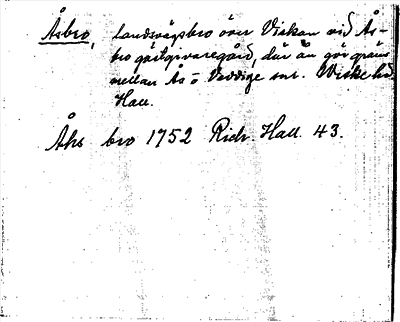 Åsbro, landsvägsbro över Viskan vid Ås-
bro gästgivaregård, där ån gör gräns
mellan Ås o Veddige snr. Viske hd,
Hall.
Åhs bro 1752 Rich. Hall. 43.